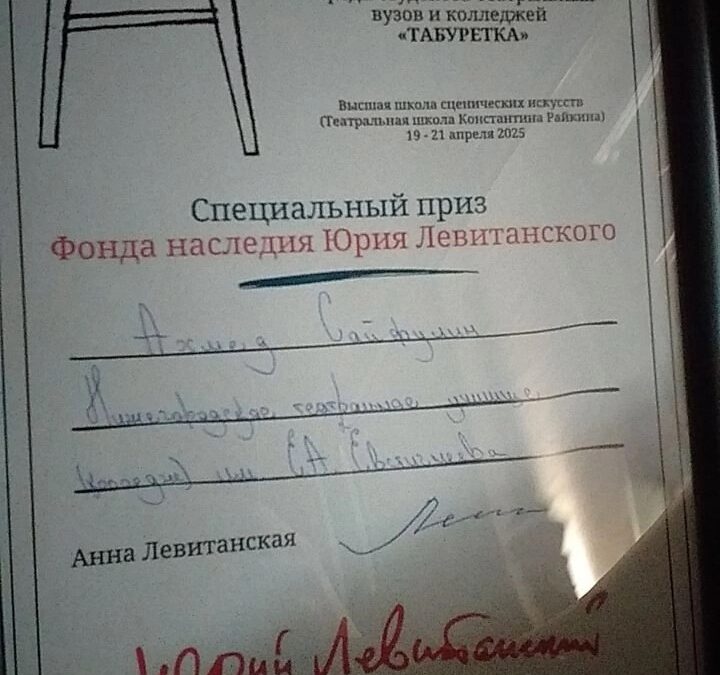 вузов и колледжей
«ТАБУРЕТКА»
Высшая школа сценических искусств
(Театральная школа Константина Райкина)
19 - 21 апреля 2025
Специальный приз
Фонда наследия Юрия Левитанского
Ахмед Сайфулин
Нижегородское театральное училище
(колледж) им. Е.А. Евстигнеева
Анна Левитанская
Юрий Левитанский